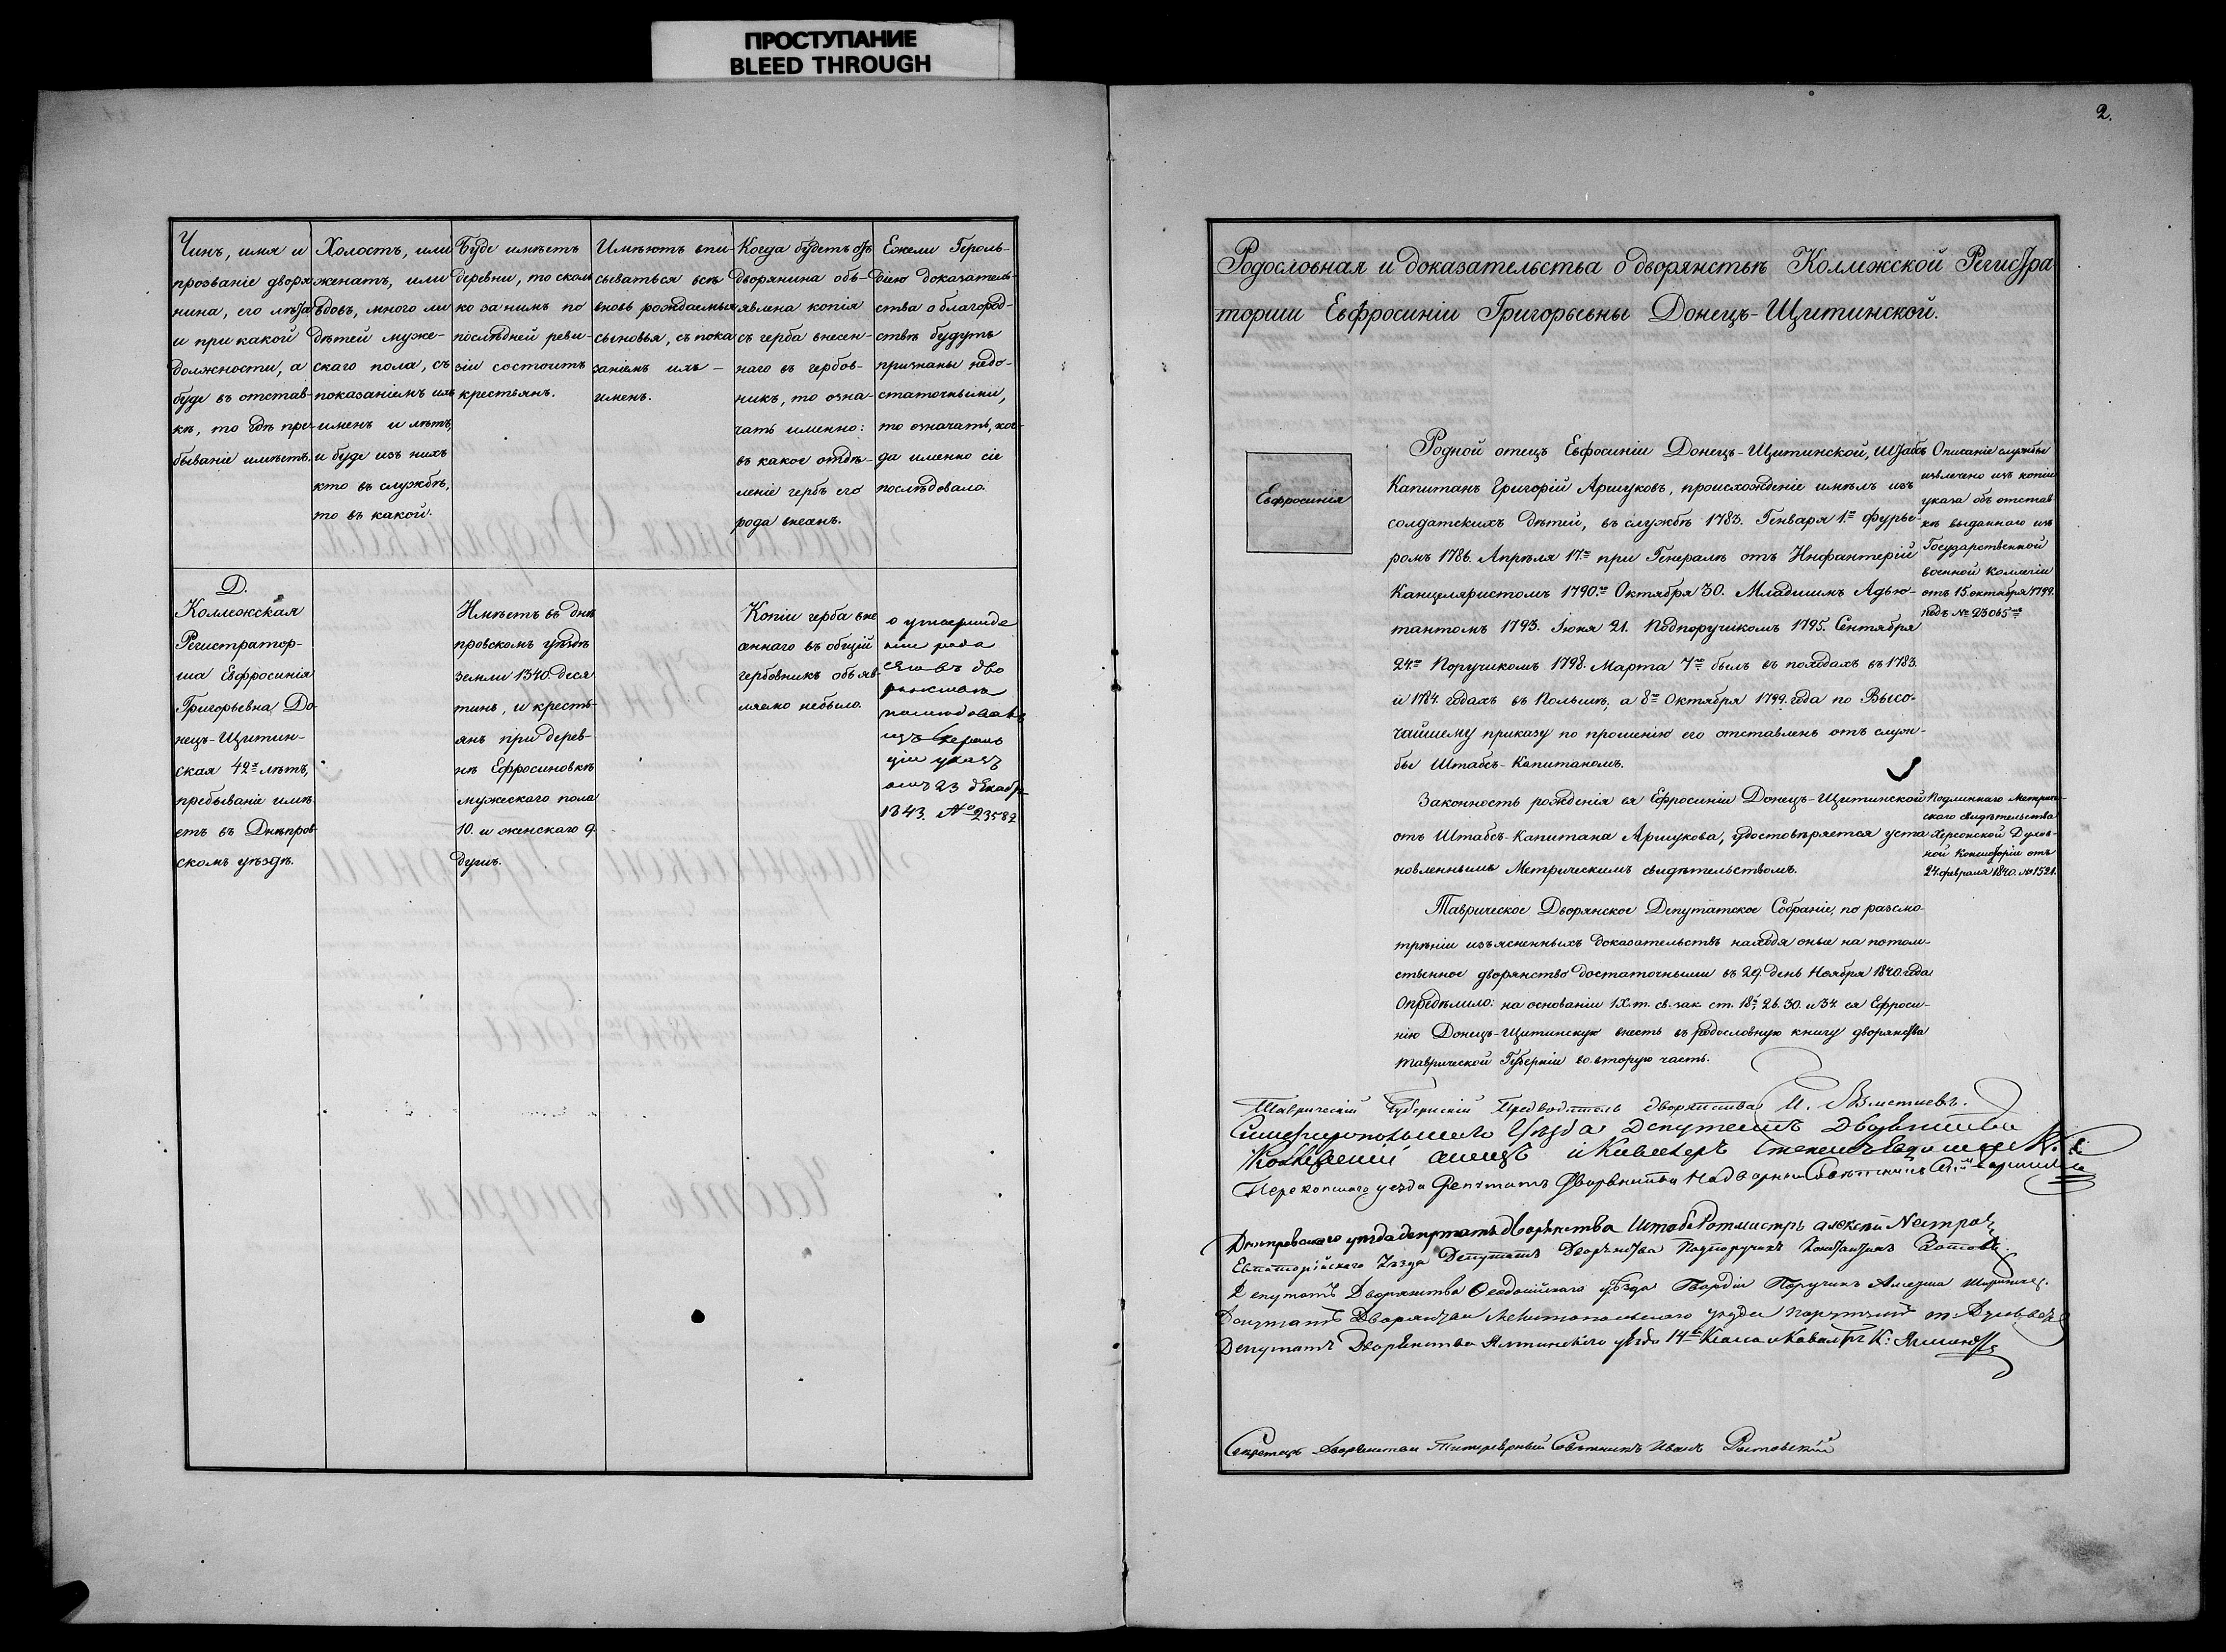 ПРОСТУПАНИЕ
BLEED THROUGH
2.
Чинъ, имя и
прозваніе дворя
нина, его лѣта
и при какой
должности, а
буде въ отстав-
кѣ, то гдѣ пре-
бываніе имѣетъ.
Холостъ, или
женатъ, или
вдовъ, много ли
дѣтей муже-
скаго пола, съ
показаніемъ ихъ
именъ и лѣтъ,
и буде изъ нихъ
кто въ службѣ,
то въ какой.
Буде имѣетъ
деревни, то сколь
ко за нимъ по
послѣдней реви-
зіи состоитъ
крестьянъ.
Имѣютъ впи-
сываться всѣ
вновь рождаемыя
сыновья, съ пока
заніемъ ихъ —
именъ.
Когда будетъ отъ
дворянина объ-
явлена копія
съ герба внесен-
наго въ гербов-
никъ, то озна-
чать именно:
въ какое отдѣ-
леніе гербъ его
рода внесенъ.
Ежели Героль-
діею доказатель-
ства о благород-
ствѣ будутъ
признаны недо-
статочными,
то означать, ког-
да именно сіе
послѣдовало.
Д.
Коллежская
Регистратор-
ша Евфросинія
Григорьевна До
нецъ-Щитин-
ская 42х лѣтъ,
пребываніе имѣ
етъ въ Днѣпров
скомъ уѣздѣ.
Имѣетъ въ Днѣ
провскомъ уѣздѣ
земли 1340. деся
тинъ, и кресть-
янъ при дерев-
нѣ Ефросиновкѣ
мужескаго пола
10. и женскаго 9.
душъ.
Копіи герба вне
сеннаго въ общій
гербовникъ объяв
ляемо небыло.
о утвержде
ніи рода
сего въ дво
рянствѣ
послѣдовалъ
изъ Героль
діи указъ
отъ 23 декабр
1843. № 23582
Родословная и доказательства о дворянствѣ Коллежской Регистра
торши Евфросиніи Григорьевны Донецъ-Щитинской.
Евфросинія
Родной отецъ Евфосиніи Донецъ-Щитинской, Штабсъ
Капитанъ Григорій Аршуковъ, происхожденіе имѣлъ изъ
солдатскихъ дѣтей, въ службѣ 1783. Генваря 1.го фурье-
ромъ 1786. Апрѣля 17.го при Генералѣ отъ Инфантеріи
Канцеляристомъ 1790.го Октября 30. Младшимъ Адъю-
тантомъ 1793. Іюня 21. Подпоручикомъ 1795. Сентября
24.го Поручикомъ 1798. Марта 7го былъ въ походахъ въ 1783.
и 1784. годахъ въ Польшѣ, а 8го Октября 1799. года по Высо-
чайшему приказу по прошенію его отставленъ отъ служ-
бы Штабсъ-Капитаномъ.
Описаніе службы
извлечено изъ копіи
указа объ отстав
кѣ выданнаго изъ
Государственной
военной коллегіи
отъ 15. октября 1799.
подъ № 23065мъ
Законность рожденія ея Ефросиніи Донецъ-Щитинской
отъ Штабсъ-Капитана Аршукова, удостовѣряется уста
новленнымъ Метрическимъ свидѣтельствомъ.
Подлиннаго Метриче-
скаго свидѣтельства
Херсонской Духов-
ной Консисторіи отъ
24. февраля 1840. № 1521.
Таврическое Дворянское Депутатское Собраніе, по разсмо-
трѣніи изъясненныхъ доказательствъ находя оные на потом-
ственное дворянство достаточными въ 29. день Ноября 1840. года
Опредѣлило: на основаніи IX. т. св. зак. ст. 18, 26. 30. и 34. ея Ефроси-
нію Донецъ-Щитинскую внесть въ родословную книгу дворянства
Таврической Губерніи во вторую часть.
Таврическій Губернскій Предводитель дворянства
Симферопольскаго Уѣзда Депутатъ Дворянства
и Кавалеръ
Перекопскаго уезда Депутатъ Дворянства Надворный Совѣтникъ
Днѣпровскаго уѣзда депутатъ дворянства Штабсъ Ротмистръ алексѣй
Евпаторійскаго Уѣзда Депутатъ Дворянства Подпоручикъ Константинъ
Депутатъ Дворянства Ѳеодосійскаго уѣзда Гвардіи Поручикъ
Депутатъ Дворянства Мелитопольскаго уезда поручикъ
Депутатъ Дворянства Ялтинскаго уѣзда 14го Класса и Кавалеръ К:
Секретарь Дворянства Титулярный Совѣтникъ Иванъ